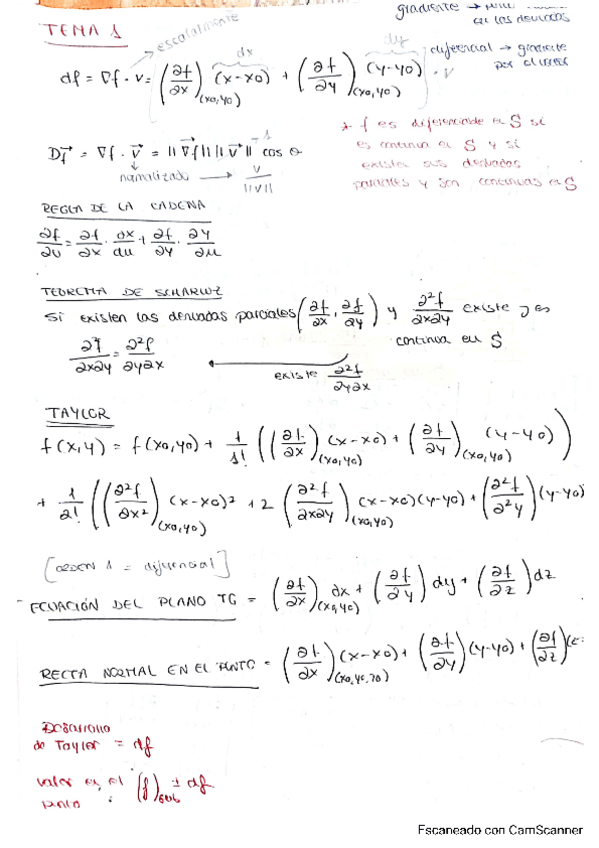 gradiente →
en las derivadas
TEMA 1
escalarmente
dx
dy
diferencial → gradiente
por el vector
df = ∇f · v = (∂f/∂x)(x0,y0) (x-x0) + (∂f/∂y)(x0,y0) (y-y0) · v
* f es diferenciable en S si
es continua en S y si
existen sus derivadas
parciales y son continuas en S
Df⃗ = ∇f · v⃗ = ||∇⃗f|| ||v⃗||¹ cos θ
normalizado → v/||v||
REGLA DE LA CADENA
∂f/∂u = ∂f/∂x · ∂x/∂u + ∂f/∂y · ∂y/∂u
TEOREMA DE SCHARWZ
Si existen las derivadas parciales (∂f/∂x, ∂f/∂y) y ∂²f/∂x∂y existe y es
continua en S
∂²f/∂x∂y = ∂²f/∂y∂x
existe ∂²f/∂y∂x
TAYLOR
f(x,y) = f(x0,y0) + 1/1! ((∂f/∂x)(x0,y0) (x-x0) + (∂f/∂y)(x0,y0) (y-y0))
+ 1/2! ((∂²f/∂x²)(x0,y0) (x-x0)² + 2 (∂²f/∂x∂y)(x0,y0) (x-x0)(y-y0) + (∂²f/∂²y) (y-y0)
[ORDEN 1 = diferencial]
- ECUACIÓN DEL PLANO TG = (∂f/∂x)(x0,y0) ∂x + (∂f/∂y) dy + (∂f/∂z) dz
RECTA NORMAL EN EL PUNTO = (∂f/∂x)(x0,y0,z0) (x-x0) + (∂f/∂y) (y-y0) + (∂f/∂z) (z-
Desarrollo
de Taylor = df
valor en el (f) ± df
punto
Escaneado con CamScanner